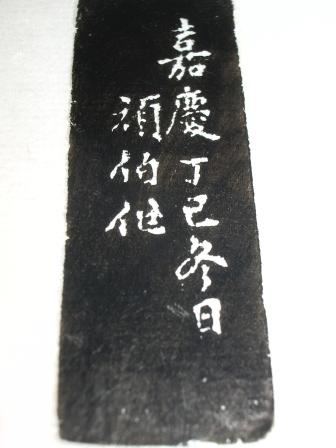 嘉慶丁巳冬日
頑伯作